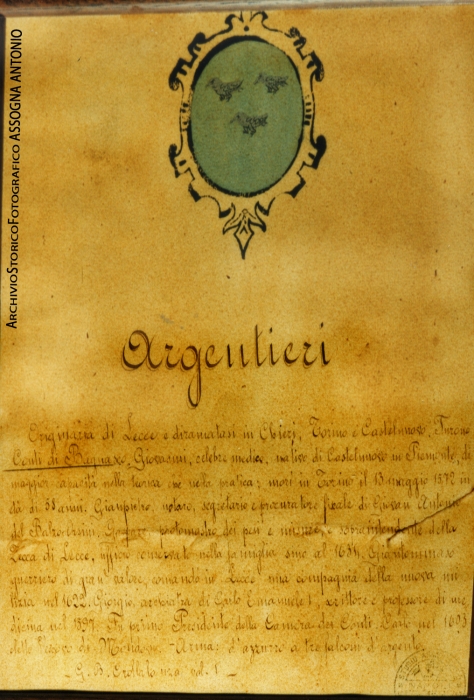 ArchivioStoricoFotografico ASSOGNA ANTONIO
Argentieri
Originaria di Lecce e diramatasi in Chieri, Torino e Castelnuovo. Furono
Conti di Bagnaxo. Giovanni, celebre medico, nativo di Castelnuovo in Piemonte, di
maggior capacità nella teorica che nella pratica; morì in Torino il 13 maggio 1572 in
di 58 anni. Gianpietro, notaro, segretario e procuratore fiscale di Giovan Antonio
del Balzo-Orsini. Gaspare protomastro dei pesi e misure, e soprintendente della
Zecca di Lecce, ufficio conservato nella famiglia sino al 1684. Giantommaso
guerriero di gran valore, comandò in Lecce una compagnia della nuova mi
lizia nel 1622. Giorgio, archiatra di Carlo Emanuele I, scrittore e professore di me
dicina nel 1597. Fu primo Presidente della Camera dei Conti. Carlo nel 1693
fu Vescovo di Mondovì. - Arma: d'azzurro a tre falconi d'argento.
- G. B. Crollalanza vol. I -